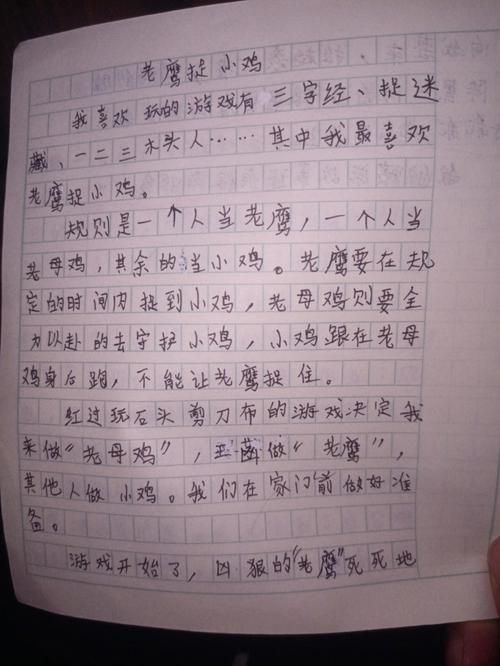 老鹰捉小鸡
我喜欢玩的游戏有三字经、捉迷
藏、一二三木头人……其中我最喜欢
老鹰捉小鸡。
规则是一个人当老鹰，一个人当
老母鸡，其余的当小鸡。老鹰要在规
定的时间内捉到小鸡，老母鸡则要全
力以赴的去守护小鸡，小鸡跟在老母
鸡身后跑，不能让老鹰捉住。
红过玩石头剪刀布的游戏决定我
来做“老母鸡”，王菡做“老鹰”，
其他人做小鸡。我们在家门前做好准
备。
游戏开始了，凶狠的“老鹰”死死地